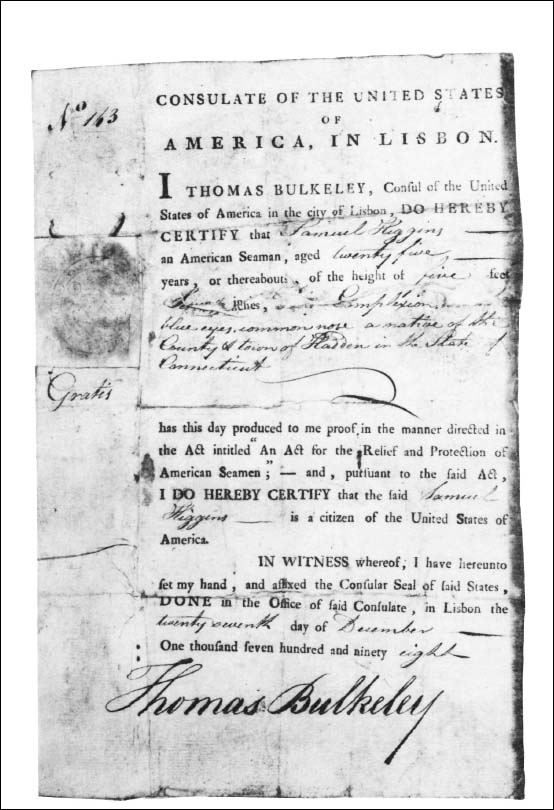 No 163
CONSULATE OF THE UNITED STATES
OF
AMERICA, IN LISBON.
I THOMAS BULKELEY, Conful of the United
States of America in the city of Lisbon, DO HEREBY
CERTIFY that Samuel Higgins
an American Seaman, aged twenty five,
years, or thereabouts, of the height of five feet
inches, Complexion
blue eyes, common nose a native of the
County & town of Hadden in the State of
Connecticut
Gratis
has this day produced to me proof, in the manner directed in
the Act intitled "An Act for the Relief and Protection of
American Seamen;" — and, purfuant to the said Act,
I DO HEREBY CERTIFY that the said Samuel
Higgins is a citizen of the United States of
America.
IN WITNESS whereof, I have hereunto
fet my hand, and affixed the Confular Seal of faid States,
DONE in the Office of faid Confulate, in Lisbon the
twenty seventh day of December
One thoufand feven hundred and ninety eight
Thomas Bulkeley